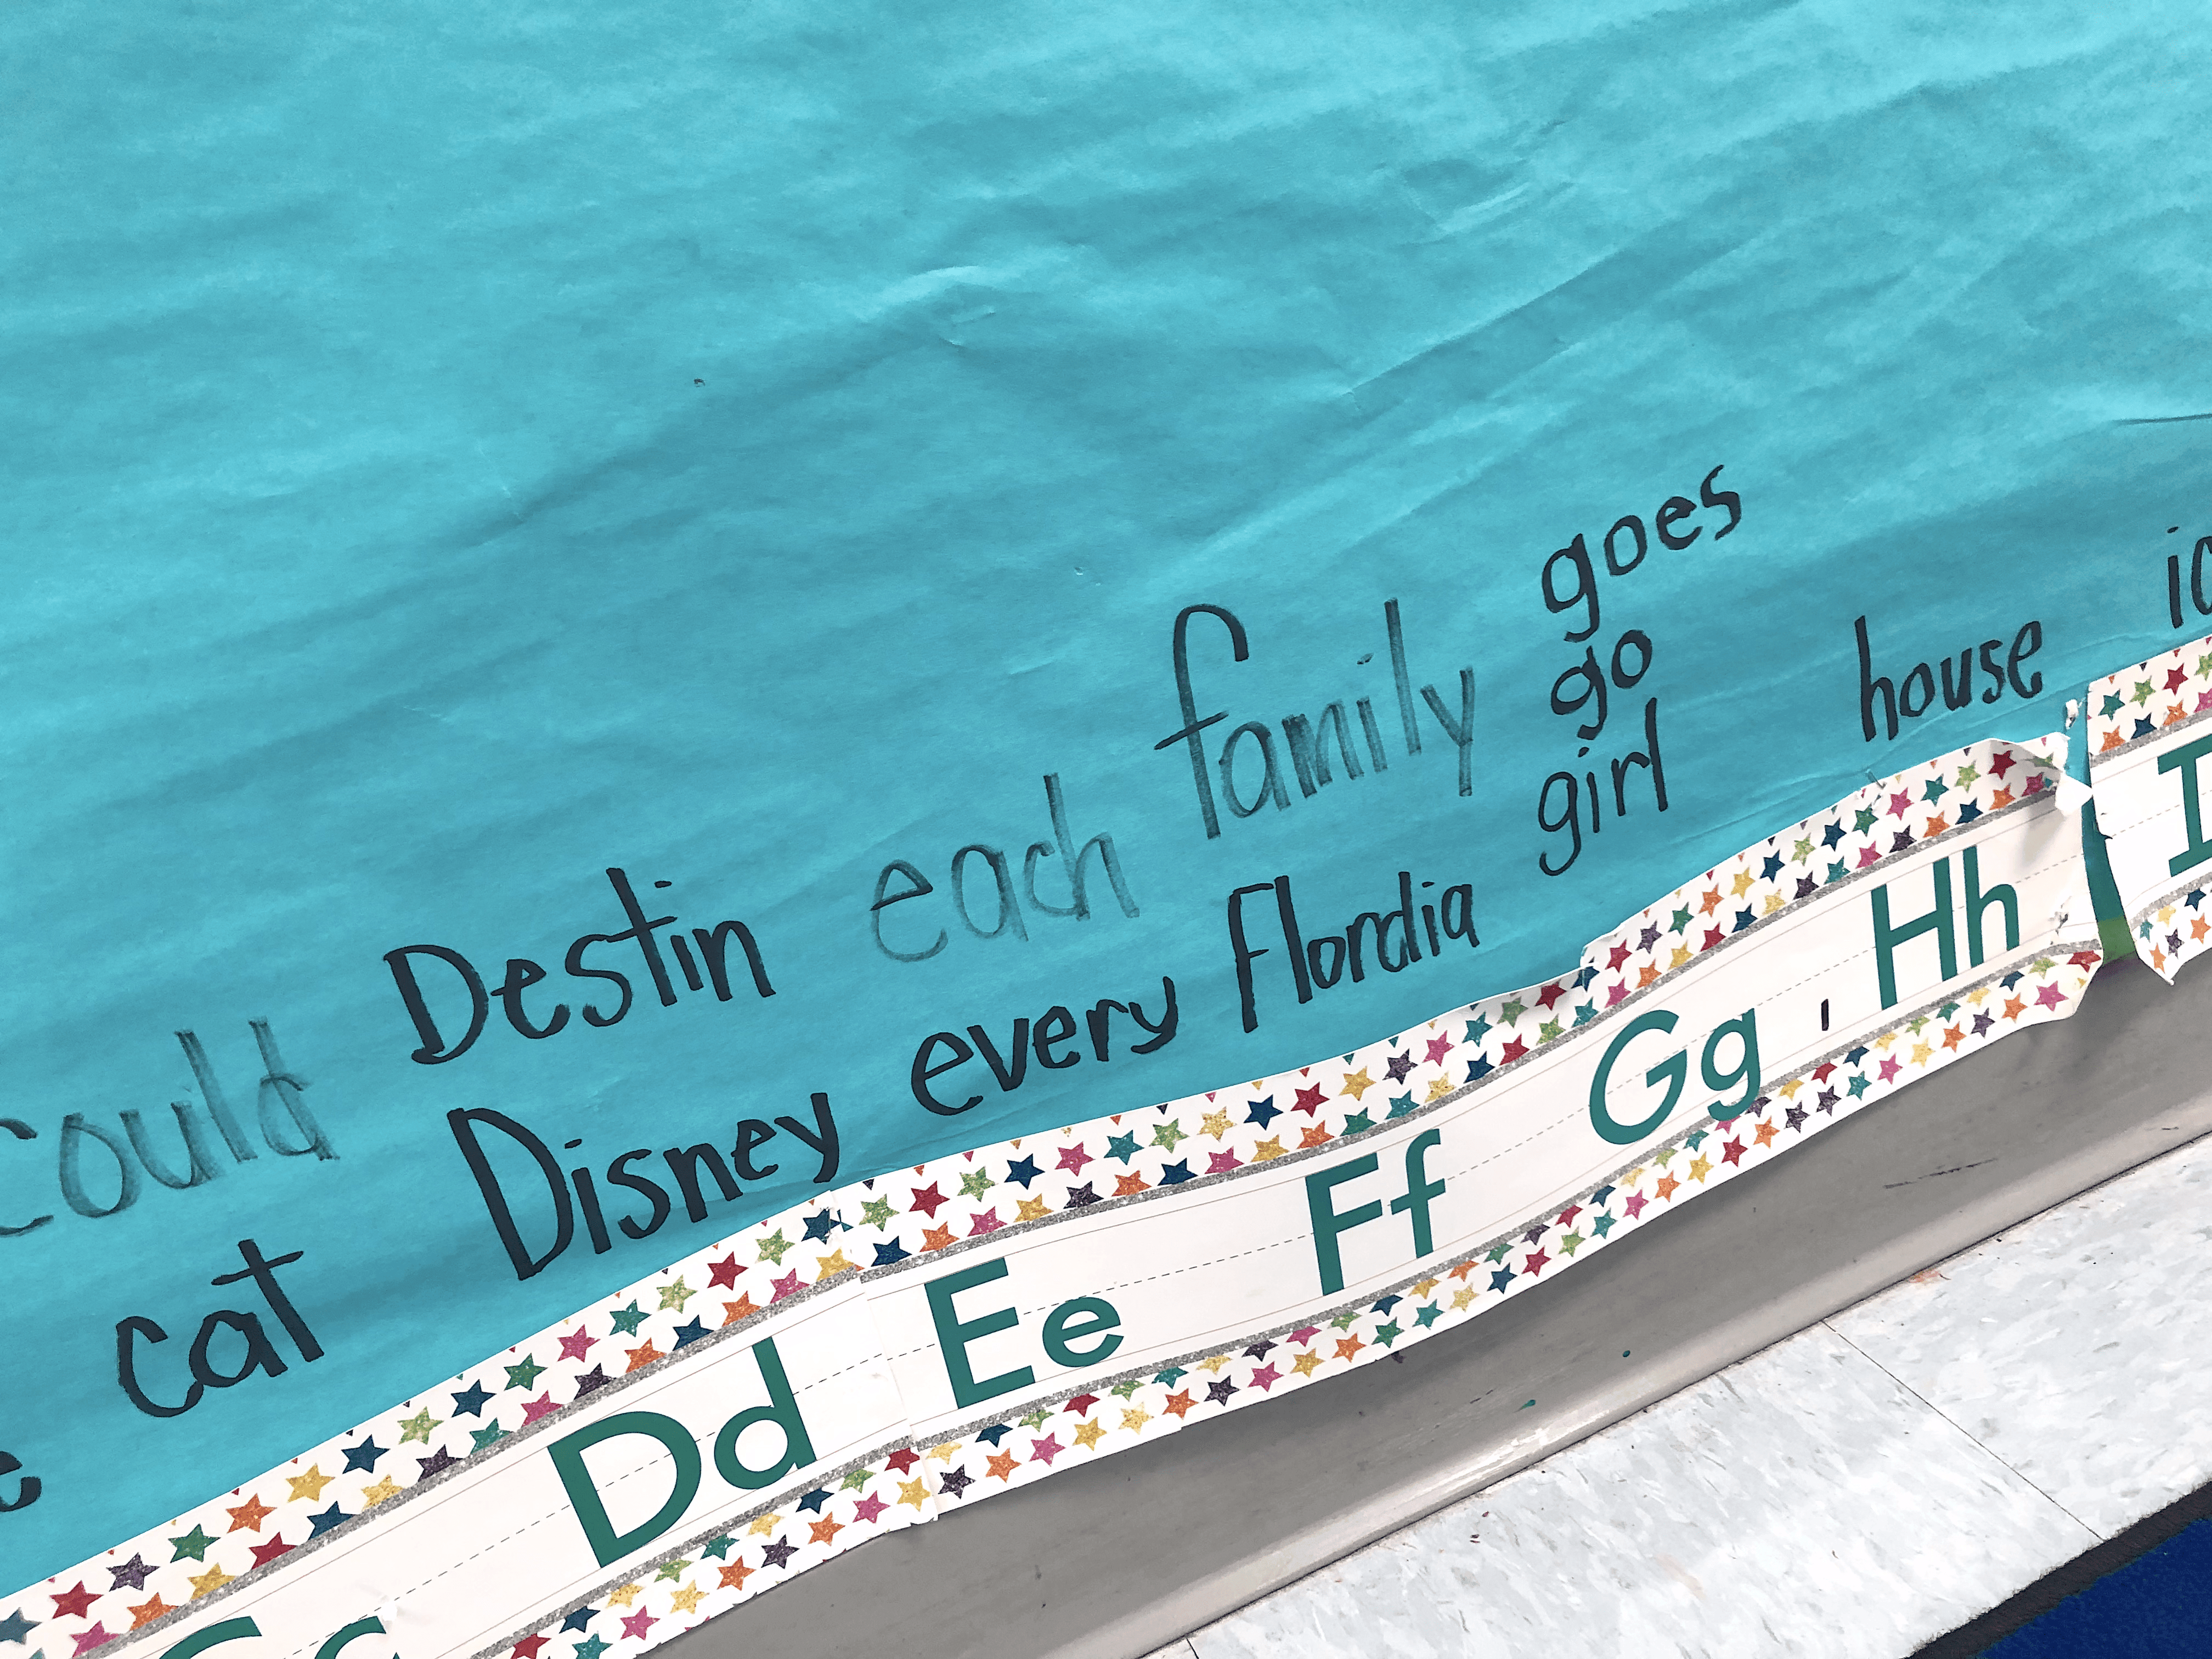 could
cat
Destin
Disney
each
every
family
Flordia
goes
go
girl
house
Cc Dd Ee Ff Gg Hh